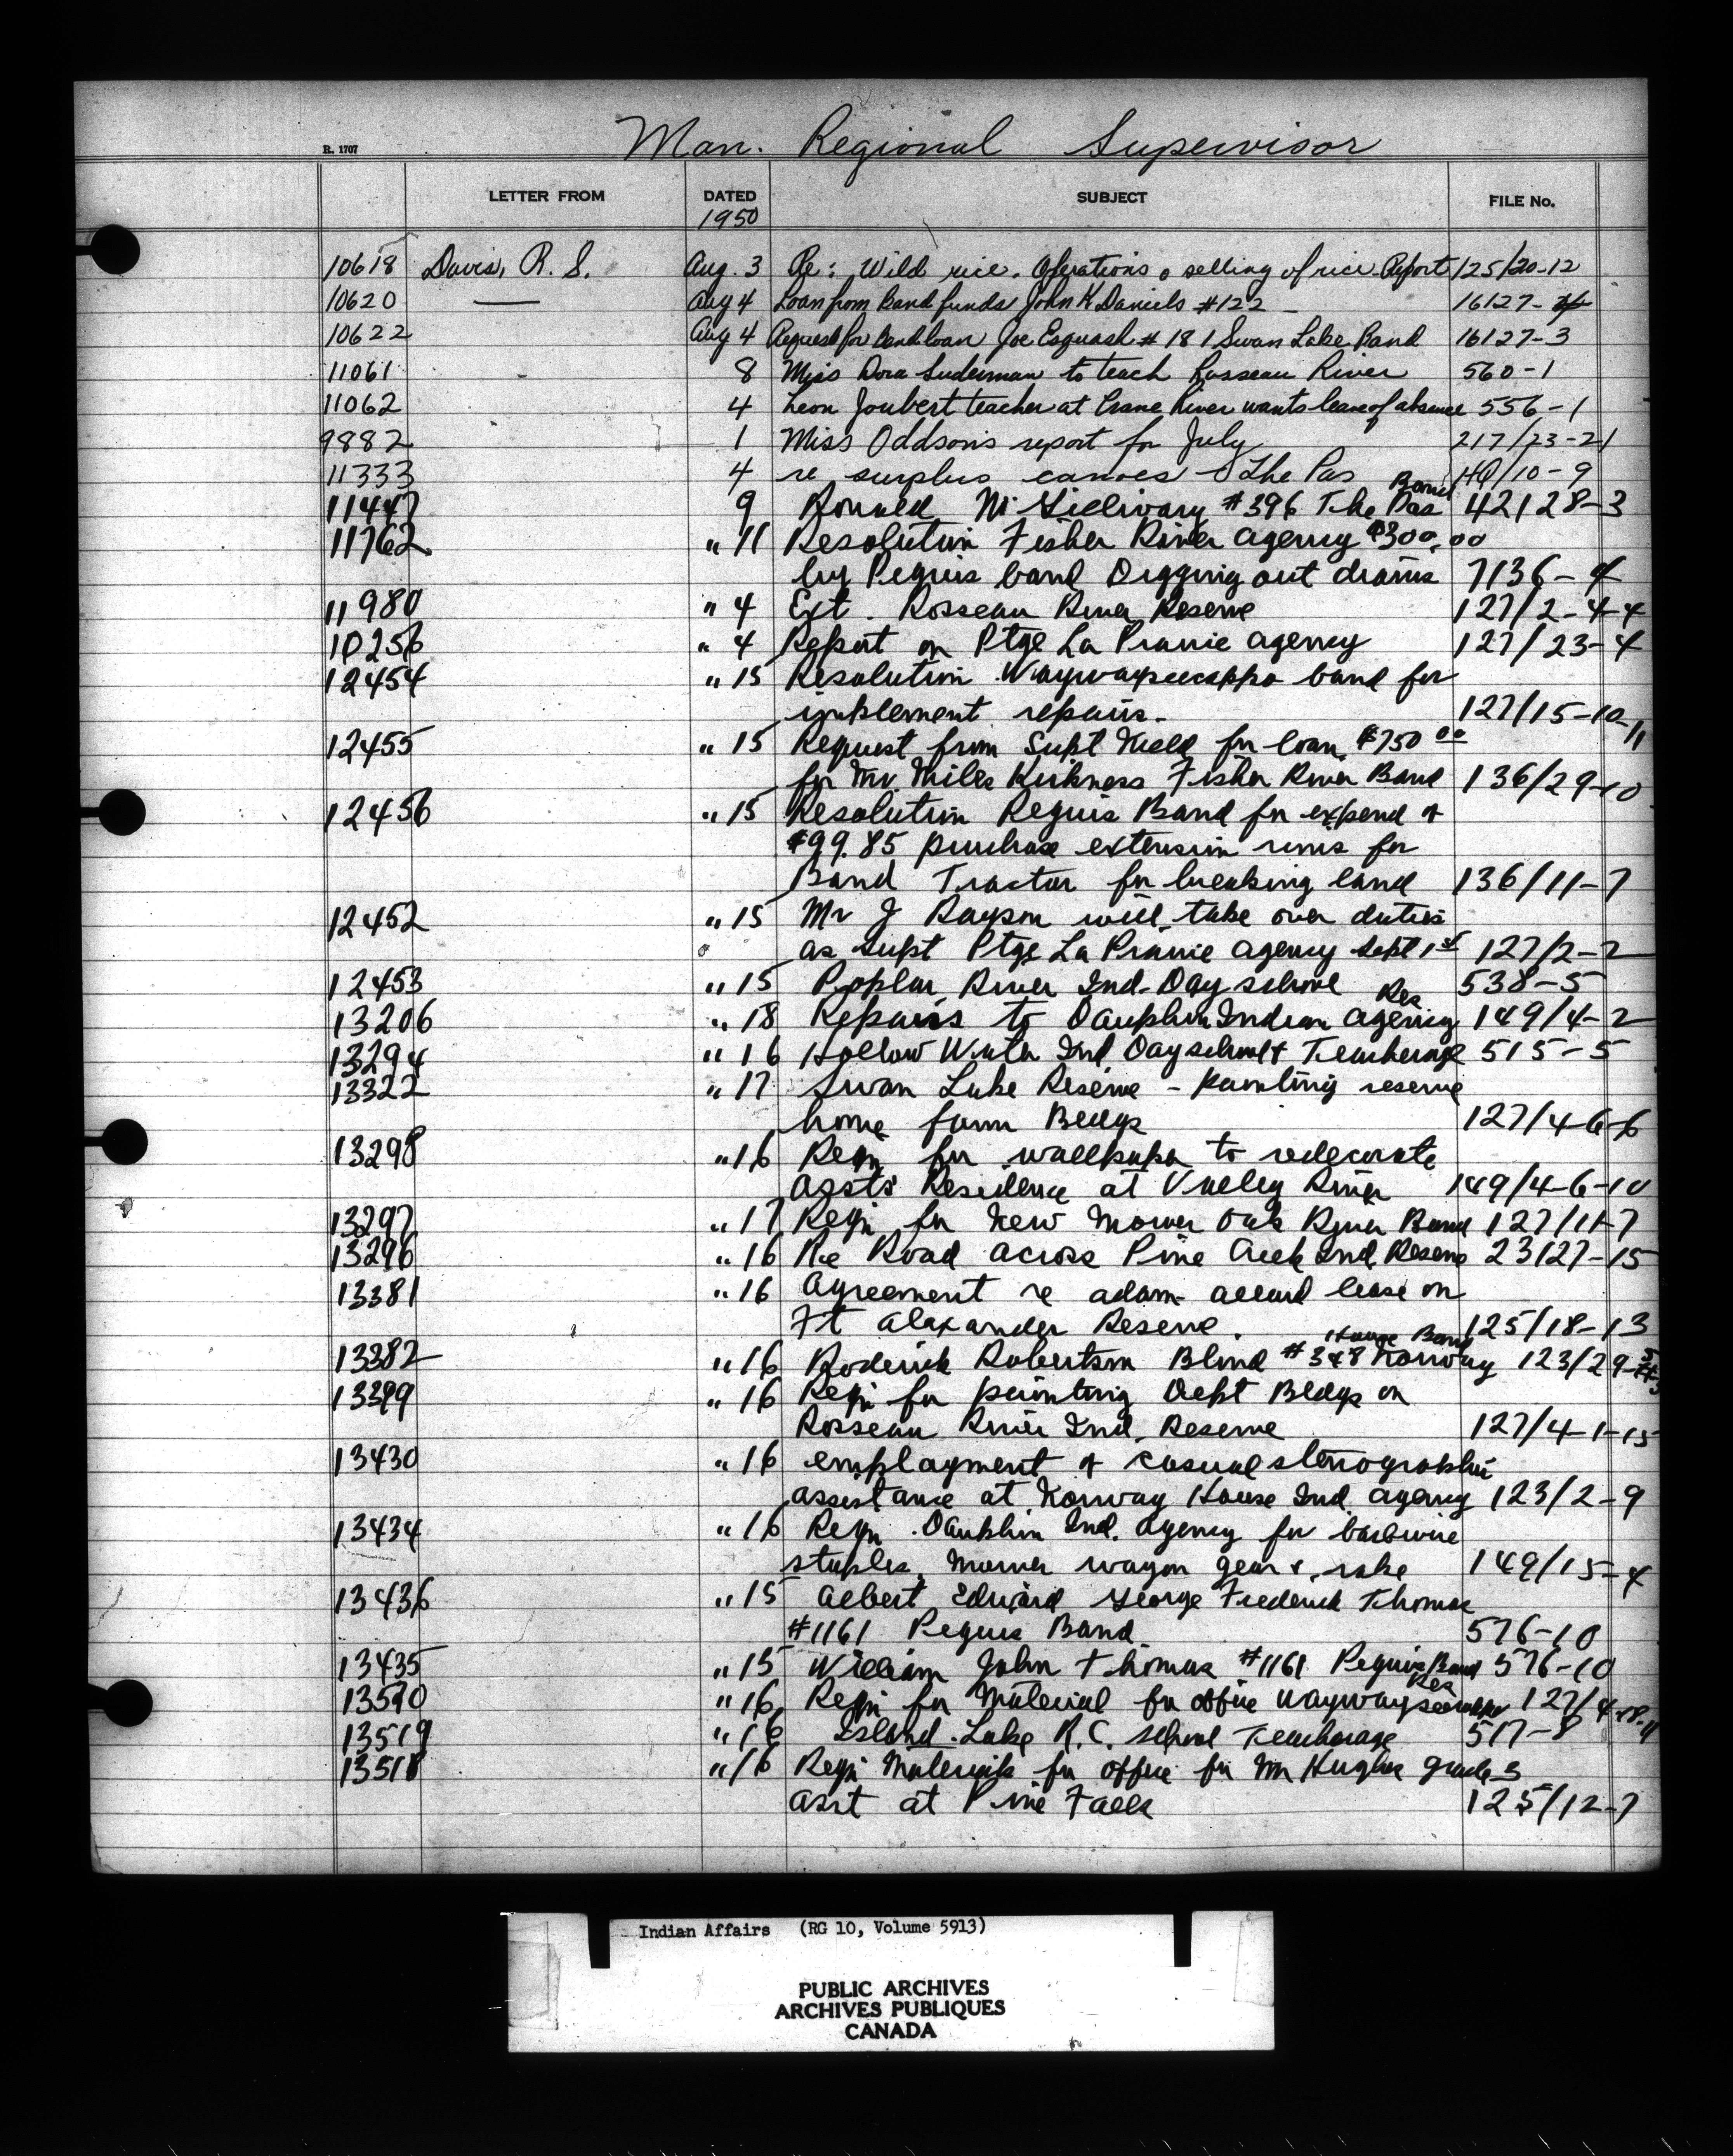 Man. Regional Supervisor
R. 1707
LETTER FROM DATED SUBJECT FILE No.
1950
10618 Davis, R. S. Aug. 3 Re: Wild rice. Operations & selling of rice Report 125/20-12
10620 —— Aug 4 Loan from Band funds John K Daniels #122 16127-
10622 Aug 4 Request for Band loan Joe Esquash #181 Swan Lake Band 16127-3
11061 8 Miss Dora Suderman to teach Rosseau River 560-1
11062 4 Leon Joubert teacher at Crane River wants leave of absence 556-1
9882 1 Miss Oddson's report for July 217/23-21
11333 4 re surplus canoes - The Pas /10-9
Band
11447 9 #396 The Pas 42128-3
11762 " 11 Resolution Fisher River Agency $300.00
by Peguis band Digging out drains 7136-4
11980 " 4 Ext. Rosseau River Reserve 127/2-4-4
10256 " 4 Report on Ptge La Prairie Agency 127/23-4
12454 " 15 Resolution Waywayseecappo band for
implement repairs. 127/15-10-11
12455 " 15 Request from Supt for loan $750 00
for Mr. Miles Kirkness Fisher River Band 136/29-10
12456 " 15 Resolution Peguis Band for expend of
$99.85 purchase extension rims for
Band Tractor for breaking land 136/11-7
12452 " 15 Mr J Rayson will take over duties
as Supt Ptge La Prairie Agency Sept 1st 127/2-2
12453 " 15 Poplar River Ind. Day school 538-5
Res
13206 " 18 Repairs to Dauphin Indian Agency 149/4-2
13294 " 16 Hollow Water Ind Day school & Teacherage 515-5
13322 " 17 Swan Lake Reserve - painting reserve
home farm Bldgs 127/4-6-6
13298 " 16 Reqn for wallpaper to redecorate
Agsts' Residence at Valley River 149/4-6-10
13297 " 17 Reqn for New Mower Oak River Band 127/11-7
13296 " 16 Re Road across Pine Creek Ind. Reserve 23127-15
13381 " 16 Agreement re adam accord lease on
Ft Alexander Reserve. 125/18-13
House Band
13382 " 16 Roderick Robertson Blind #348 Norway 123/29-
13399 " 16 Reqn for painting Dept Bldgs on
Rosseau River Ind. Reserve 127/4-1-15
13430 " 16 employment of casual stenographic
assistance at Norway House Ind. Agency 123/2-9
13434 " 16 Reqn. Dauphin Ind. Agency for barbwire
staples, Mower wagon gear & rake 149/15-4
13436 " 15 Albert Edward George Frederick Thomas
#1161 Peguis Band 576-10
13435 " 15 William John Thomas #1161 Peguis Band 576-10
Res
13520 " 16 Reqn for Material for office Waywayseecappo 127/4-18-11
13519 " 16 Island Lake R.C. School Teacherage 517-8
13518 " 16 Reqn Materials for office for Mr Hughes grade 3
asst at Pine Falls 125/12-7
Indian Affairs (RG 10, Volume 5913)
PUBLIC ARCHIVES
ARCHIVES PUBLIQUES
CANADA